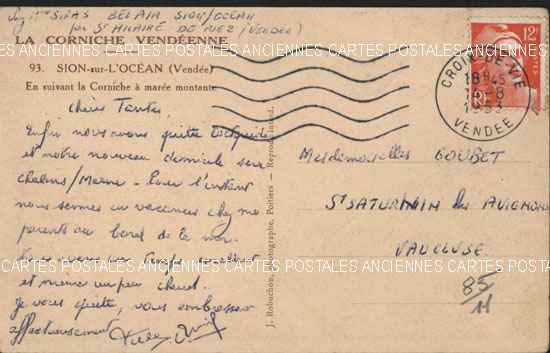 Mme SIPAS BEL AIR SION/OCÉAN
par St HILAIRE DE RIEZ (VENDÉE)
LA CORNICHE VENDÉENNE
93. SION-sur-L'OCÉAN (Vendée)
En suivant la Corniche à marée montante
Chères Tantes
Enfin nous avons quitté
et notre nouveau domicile sera
Chalons/Marne - Pour l'instant
nous sommes en vacances chez mes
parents au bord de la mer.
Nous avons un temps excellent
et même un peu chaud.
Je vous quitte, vous embrasse
affectueusement
J. Robuchon, Photographe, Poitiers - Reprod. interd.
12F
POSTES
CROIX-DE-VIE
18H45
14-8
VENDÉE
Mesdemoiselles GOUBET
St SATURNIN les AVIGNON
VAUCLUSE
85
11
CARTES POSTALES ANCIENNES CARTES POSTALES ANCIENNES CARTES POSTALES ANCIENNES
CARTES POSTALES ANCIENNES CARTES POSTALES ANCIENNES CARTES POSTALES ANCIENNES